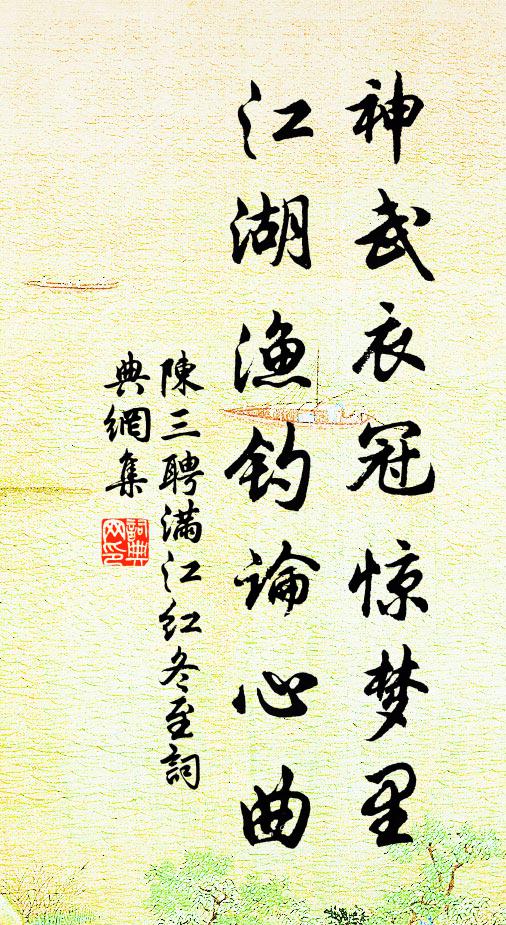 神武衣冠惊梦里
江湖渔钓論心曲
陳三聘满江红冬至詞
典網集
詞典
网印